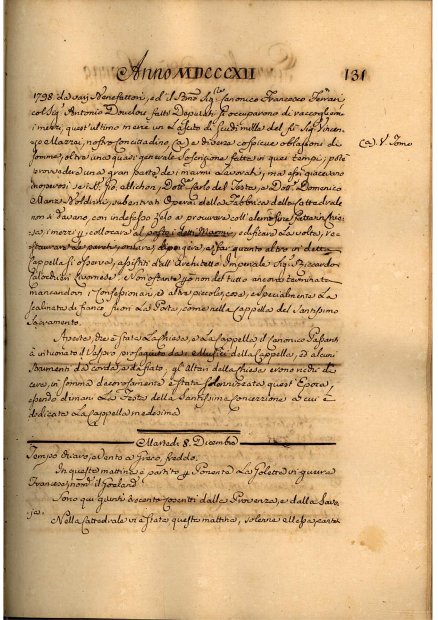 Anno MDCCCXII
131
1798 da varj Benefattori, ed il Sig. Canonico Francesco Ferrari,
col Sig. Antonio Deputati si occuparono di raccogliern
i mezzi, quest'ultimo mercè un Lascito di Scudi mille del fù Sig. Vincen
(a). V. Tomo
zo Allazzai, nostro concittadino (a) e diverse cospicue oblazioni di
persone, oltre una quasi generale Soscrizione fatta in quei tempi, potè
provvedere una gran parte dei marmi Lavorati, ma essi giacevano
inoperosi se il Carlo del Testa, e Dott. Domenico
subentrati Operai della Fabbrica della Cattedrale
non si davano, con indefesso zelo a procurare coll'elemosine fatte
i mezzi, e collocare al posto detti Marmi, edificare la volta, re
staurare le pareti, e far quanto altro in detta
Cappella si osserva, assistiti dall'Architetto Imperiale Sig. Riccardo
Calocchieri Livornese. Non ostante però non del tutto ancora terminata
mancandovi i Confessionarj ed altre piccole cose, e specialmente la
scalinata di fianco fuori la Porta, come nella Cappella del Santissimo
Sacramento.
Aperta, che è stata la Chiesa, e la Cappella il Canonico Passant
à intuonato il Vespro proseguito dai Musici della Cappella, ed alcuni
Istrumenti da corda, e da fiato, gli Altari della Chiesa erono di
cera, in somma decorosamente è stata solennizzata quest'Epoca,
essendo dimani la Festa della Santissima Concezzione a cui è
dedicata la Cappella medesima
Martedì 8. Dicembre
Tempo chiaro, e vento a Greco, freddo.
In questa mattina è partito p. Ponente la Goletta di guerra
Francese, nom.
Sono qui giunti trecento Coscritti dalla Provenza, e dalla Savo
ja.
Nella Cattedrale vi è stata questa mattina, solenne Messa, cantat